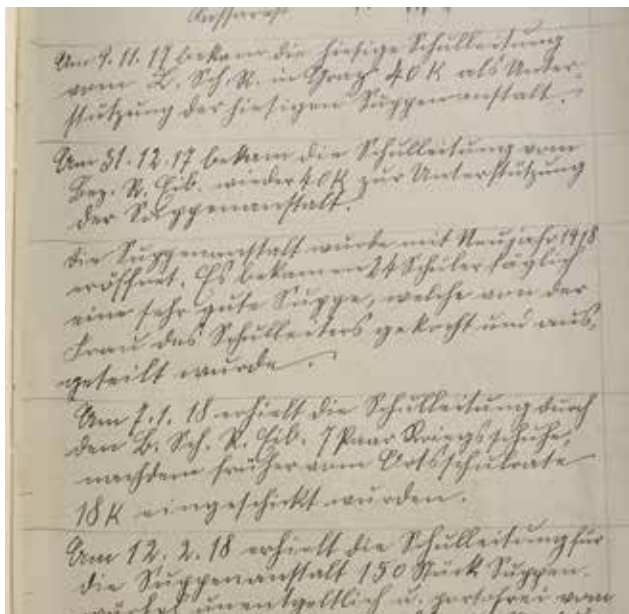 Am 9.11.17 bekam die hiesige Schulleitung
vom L. Sch. R. in Graz 40 K als Unter-
stützung der hiesigen Suppenanstalt.
Am 31.12.17 bekam die Schulleitung vom
Bez. R. Eib. wieder 40 K zur Unterstützung
der Suppenanstalt.
Die Suppenanstalt wurde mit Neujahr 1918
eröffnet. Es bekamen 24 Schüler täglich
eine sehr gute Suppe, welche von der
Frau des Schulleiters gekocht und aus-
geteilt wurde.
Am 7.1.18 erhielt die Schulleitung durch
den B. Sch. R. Eib. 7 Paar Kriegsschuhe,
nachdem früher vom Ortsschulrate
18 K eingeschickt wurden.
Am 12.2.18 erhielt die Schulleitung für
die Suppenanstalt 150 Stück Suppen-
würfel unentgeltlich u. portofrei vom